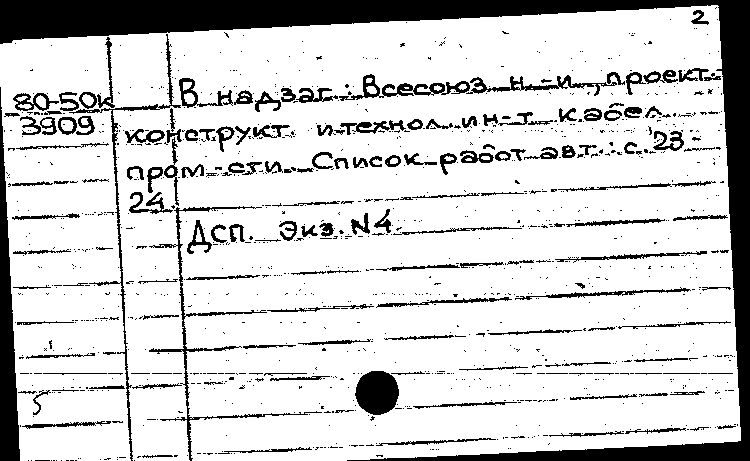 2
80-50к В надзаг.: Всесоюз. н.-и., проект.-
3909 конструкт. и технол. ин-т кабел.
пром-сти. Список работ авт.: с. 23-
24.
Дсп. Экз. N4.
5